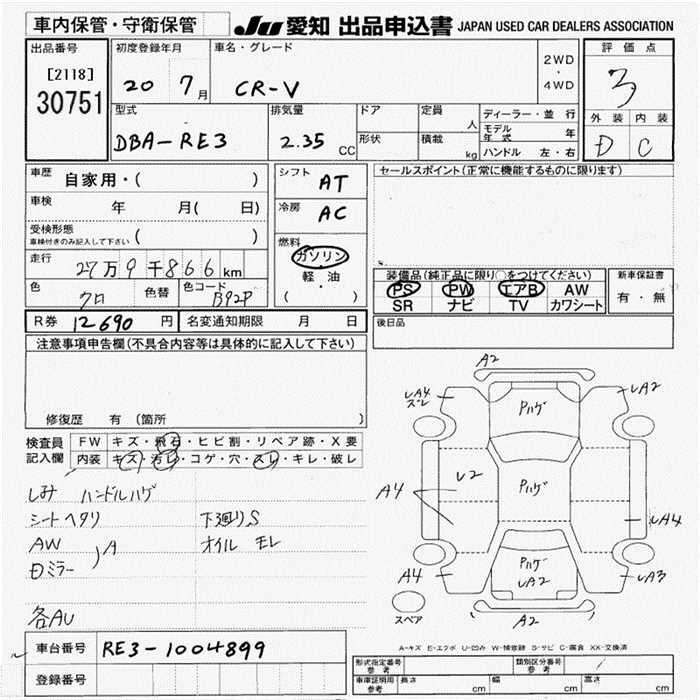 車内保管・守衛保管
JU 愛知 出品申込書 JAPAN USED CAR DEALERS ASSOCIATION
出品番号
[2118]
30751
初度登録年月
20 7月
車名・グレード
CR-V
2WD
・
4WD
評価点
3
外装 内装
D C
型式
DBA-RE3
排気量
2.35 CC
ドア
形状
定員
人
積載
kg
ディーラー・並行
モデル年式 年
ハンドル 左・右
車歴 自家用・( )
車検 年 月( 日)
受検形態
車検付きのみ記入して下さい ( )
走行
27万9千866km
色
クロ
色替
色コード
B92P
シフト AT
冷房 AC
燃料
ガソリン
軽・油
( )
セールスポイント(正常に機能するものに限ります)
装備品(純正品に限り○をつけてください)
PS PW エアB AW
SR ナビ TV カワシート
新車保証書
有・無
R券 12690 円 名変通知期限 月 日
後日品
注意事項申告欄(不具合内容等は具体的に記入して下さい)
修復歴 有 (箇所 )
検査員
記入欄
FW キズ・飛石・ヒビ割・リペア跡・X要
内装 キズ・汚レ・コゲ・穴・スレ・キレ・破レ
しみ ハンドルハゲ
シートヘタリ 下廻りS
AW オイル モレ
Dミラー ) A
各AU
A2
レA4
ズレ
レA2
Pハゲ
レ2
Pハゲ
A4
レA4
Pハゲ
レA2
A4
レA3
スペア
A2
A-キズ E-エクボ U-凹み W-補修跡 S-サビ C-腐食 XX-交換済
車台番号 RE3-1004899
登録番号
形式指定番号
参考
類別区分番号
参考
車庫証明用
参考
長さ cm 幅 cm 高さ cm